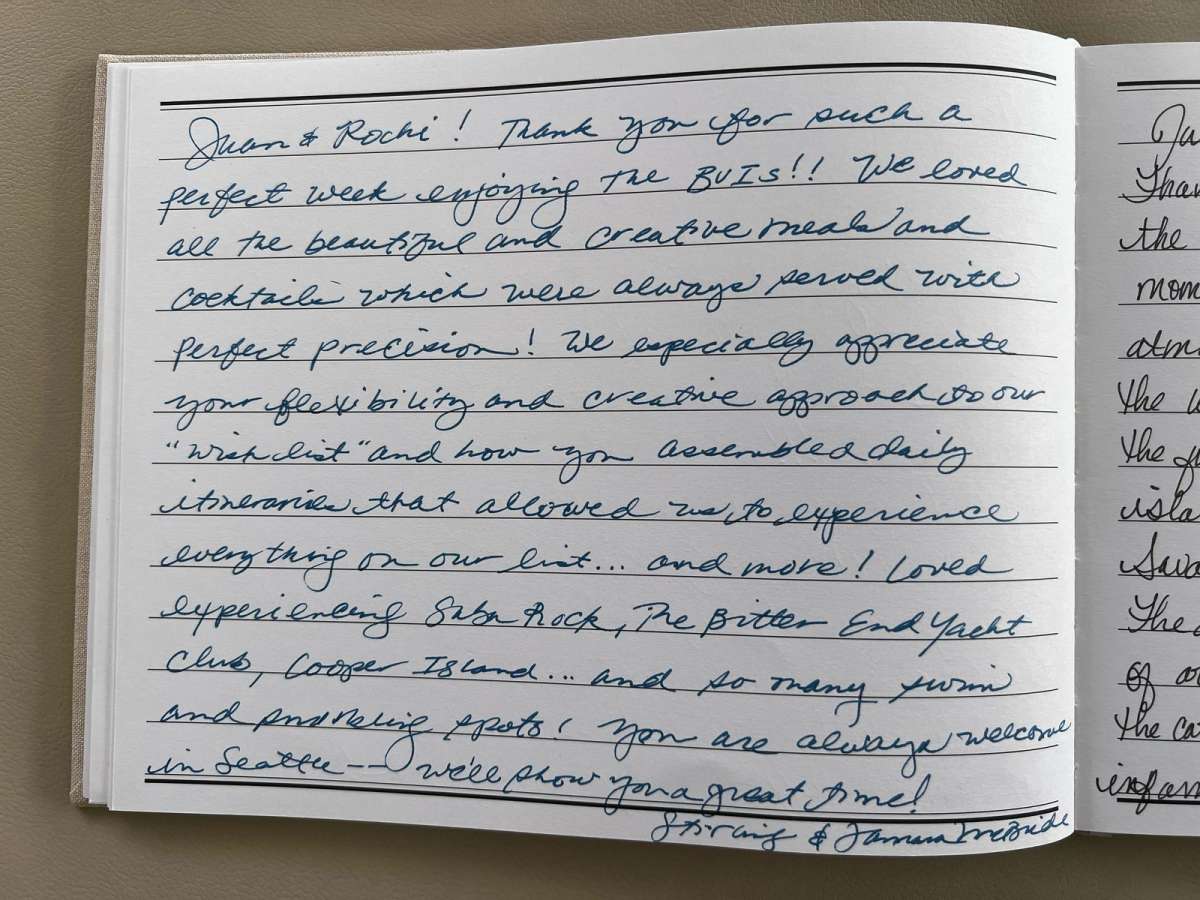 Juan & Rochi! Thank you for such a
perfect week enjoying the BVIs!! We loved
all the beautiful and creative meals and
cocktails which were always served with
perfect precision! We especially appreciate
your flexibility and creative approach to our
"wish list" and how you assembled daily
itineraries that allowed us to experience
everything on our list... and more! Loved
experiencing Saba Rock, The Bitter End Yacht
Club, Cooper Island... and so many swim
and snorkeling spots! You are always welcome
in Seattle -- we'll show you a great time!
Stirling & Tamara McBride
the
the
the
The
of
the